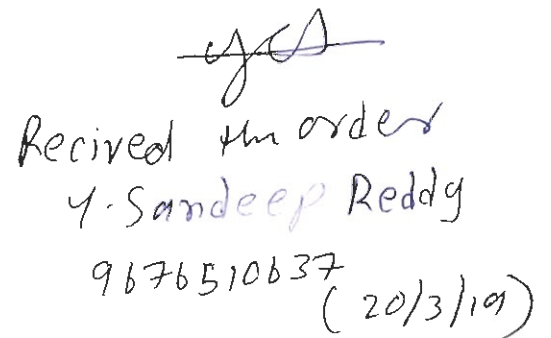 Recived the order
Y. Sandeep Reddy
9676510637
(20/3/19)